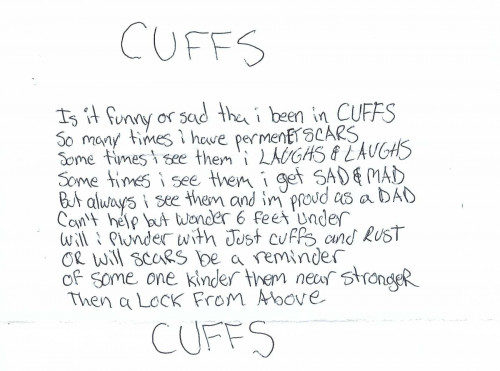 CUFFS
Is it funny or sad tha i been in CUFFS
So many times i have permenET SCARS
Some times i see them i LAUGHS & LAUGHS
Some times i see them i get SAD & MAD
But always i see them and im proud as a DAD
Can't help but wonder 6 feet under
Will i plunder with Just cuffs and RUST
OR will scars be a reminder
of some one kinder them near strongeR
Then a Lock From Above
CUFFS